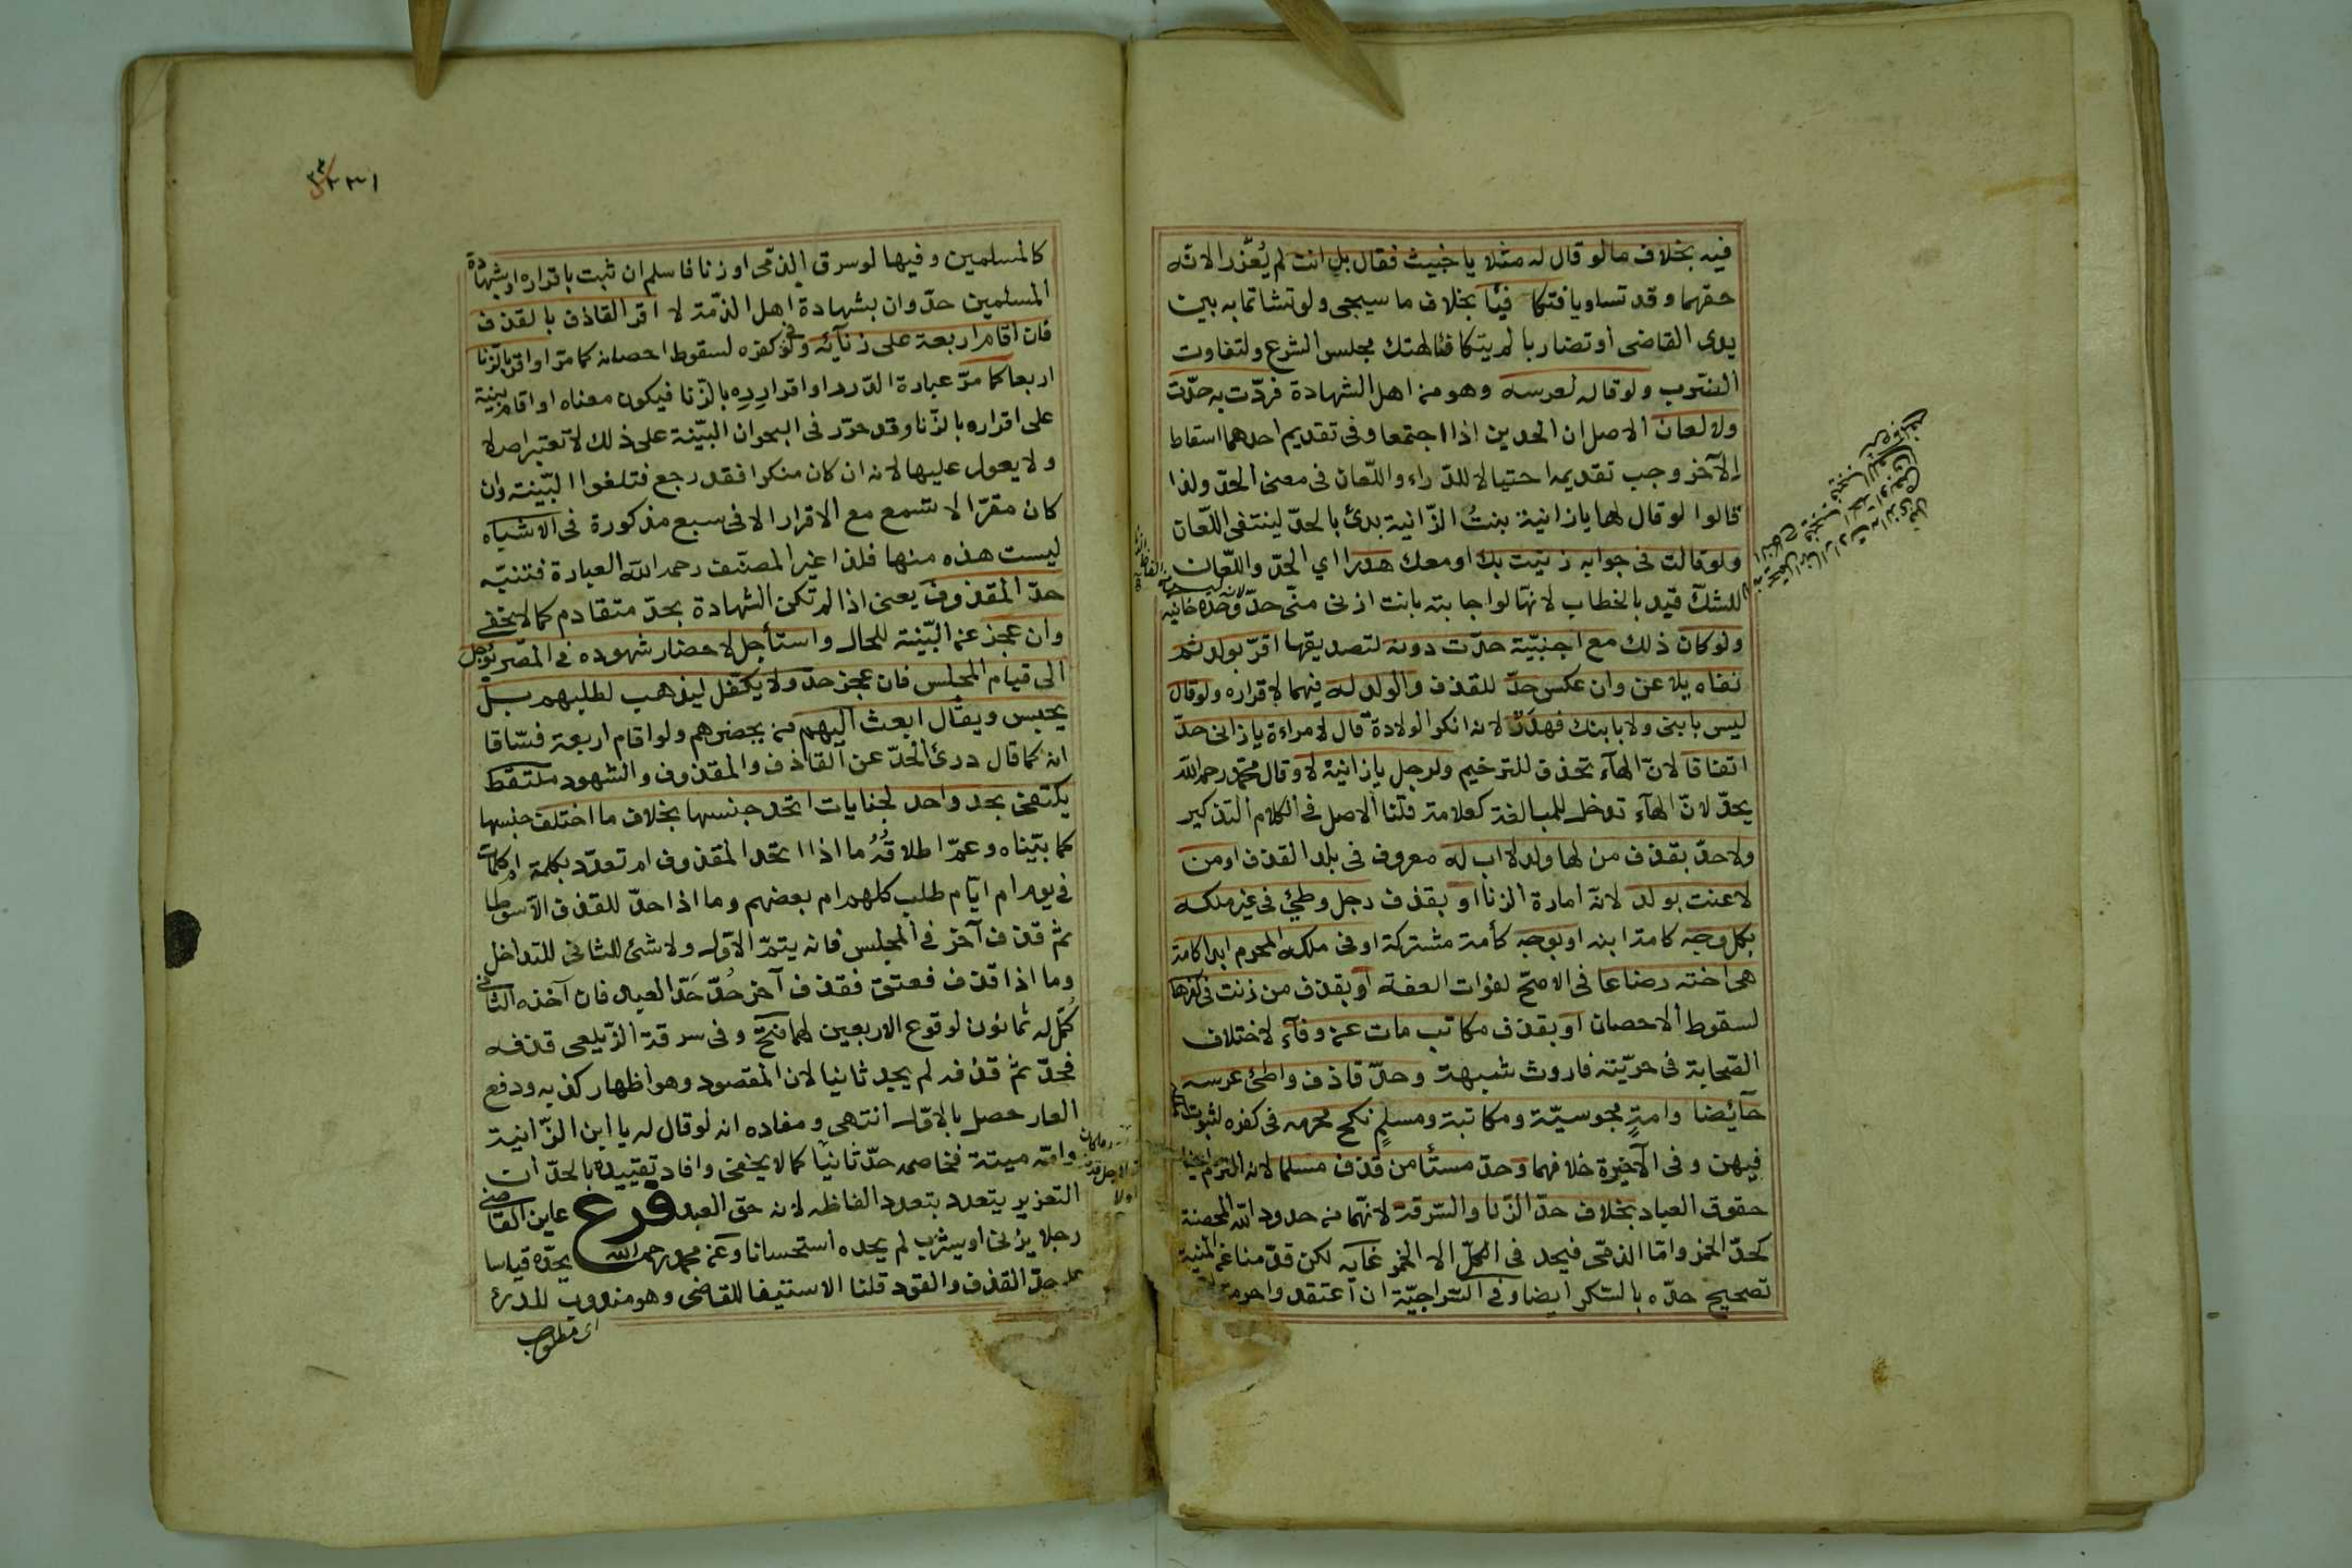 فيه بخلاف ما لو قال له مثلا يا خبيث فقال بل انت لم يُعزّر الانه
حقهما وقد تساويا فتكا فيأ بخلاف ما سيجى ولو تشاتما به بين
يدى القاضى او تضاربا لم يتكافئا لهتك مجلس الشرع ولتفاوت
الضرب ولو قاله لعرسه وهو من اهل الشهادة فردّت به حدّت
ولا لعان الاصل ان الحدين اذا اجتمعا وفى تقديم احدهما اسقاط
الآخر وجب تقديمه احتيالا للدّراء واللّعان فى معنى الحدّ ولذا
قالوا لو قال لها يا زانية بنتُ الزّانية بدئ بالحدّ لينتفى اللّعان
ولو قالت فى جوابه زنيت بك او معك هدرا اي الحدّ واللّعان
للشكّ قيد بالخطاب لانها لو اجابته بانت ازنى منّى حدّ وحده خانيه
ولو كان ذلك مع اجنبيّة حدّت دونه لتصديقها اقرّ بولد ثم
نفاه يلاعن وان عكس حدّ للقذف والولد له فيهما لاقراره ولو قال
ليس بابنى ولا بابنك فهدر لانه انكر الولادة قال لامراءة يا زانى حدّ
اتفاقا لانّ الهآء تحذف للترخيم ولرجل يا زانية لا وقال محمّد رحمه الله
يحدّ لانّ الهآء تدخل للمبالغة كعلامة قلنا الاصل فى الكلام التذكير
ولا حدّ بقذف من لها ولد لا اب له معروف فى بلد القذف او من
لاعنت بولد لانه امارة الزنا او بقذف رجل وطئ فى غير ملكه
بكل وجه كامة ابنه او بوجه كأمة مشتركة او فى ملكه المحرم ابدا كامة
هى اخته رضاعا فى الاصح لفوات العفة او بقذف من زنت فى كفرها
لسقوط الاحصان او بقذف مكاتب مات عن وفآء لاختلاف
الصّحابة فى حرّيته فاروث شبهة وحدّ قاذف واطئ عرسه
حآئضا وامةٍ مجوسيّة ومكاتبة ومسلمٍ نكح محرمه فى كفره لثبوت
فيهن وفى الآخيرة خلافهما وحدّ مستأمن قذف مسلما لانه التزم
حقوق العباد بخلاف حدّ الزّنا والسّرقة لانّهما من حدود الله المحضة
كحدّ الخمر وامّا الذمّى فيحد فى الكلّ الا الخمر غايه لكن قدّمنا عن المنية
تصحيح حدّه بالسّكر ايضا وفى السّراجيّة ان اعتقد واحرمة
كالمسلمين وفيها لو سرق الذمّى او زنا فاسلم ان ثبت باقراره او بشهادة
المسلمين حدّ وان بشهادة اهل الذمّة لا اقر القاذف بالقذف
فان اقام اربعة على زنآئه ولو فى كفره لسقوط احصانه كما مرّ او اقر بالزّنا
اربعا كما مرّ عبارة الدّرر او اقراره بالزّنا فيكون معناه او اقام بينة
على اقراره بالزّنا وقد حرّر فى البحر ان البيّنة على ذلك لا تعتبر اصلا
ولا يعول عليها لانه ان كان منكرا فقد رجع فتلغوا البّينة وان
كان مقرّا لا تسمع مع الاقرار الا فى سبع مذكورة فى الاشباه
ليست هذه منها فلذا غير المصنّف رحمه الله العبادة فتنبّه
حدّ المقذوف يعنى اذا لم تكن الشهادة بحدّ متقادم كما لا يخفى
وان عجز عن البّينة للحال واستأجل لاحضار شهوده فى المصر يؤجل
الى قيام المجلس فان عجز حدّ ولا يكفل ليذهب لطلبهم بل
يحبس ويقال ابعث اليهم من يحضرهم ولو اقام اربعة فسّاقا
انه كما قال درئ الحدّ عن القاذف والمقذوف والشهود ملتقط
يكتفى بحد واحد لجنايات اتحد جنسها بخلاف ما اختلف جنسها
كما بيّناه وعمّ اطلاقُه ما اذا اتحد المقذوف ام تعدّد بكلمة ام كلمات
فى يوم ام ايّام طلب كلهم ام بعضهم وما اذا حدّ للقذف الا سوطا
ثم قذف آخر فى المجلس فانه يتمّ الاوّل ولا شئ للثانى للتداخل
وما اذا قذف فعتق فقذف آخر حُدّ حَدّ العبد فان آخذه الثانى
كُمّل له ثمانون لوقوع الاربعين لهما فتح وفى سرقة الزّيلعى قذفه
فحدّ ثم قذفه لم يحد ثانيا لان المقصود وهو اظهار كذبه ودفع
العار حصل بالاوّل انتهى ومفاده انه لو قال له يا ابن الزّانية
وامّه ميتة فخاصمه حدّ ثانيًا كما لا يخفى وافاد تقييده بالحدّ ان
التعزير يتعدد بتعدد الفاظه لانه حق العبد فرع عاين القاضى
رجلا يزنى او يشرب لم يحده استحسانا وعن محمد رحمه الله يحدّه قياسا
على حدّ القذف والقود قلنا الاستيفا للقاضى وهو مندوب للدرئ
اى مطلوب